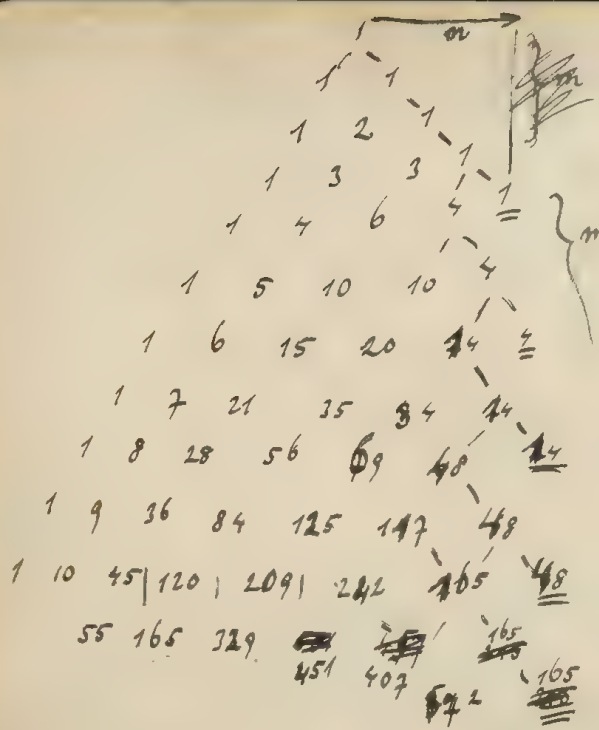 1 n
1 1
1 2 1
1 3 3 1
1 4 6 4 1
1 5 10 10 4
1 6 15 20 14 4
1 7 21 35 34 14
1 8 28 56 69 48 14
1 9 36 84 125 117 48
1 10 45 | 120 | 209 | 242 165 48
55 165 329 451 407 165
572 165